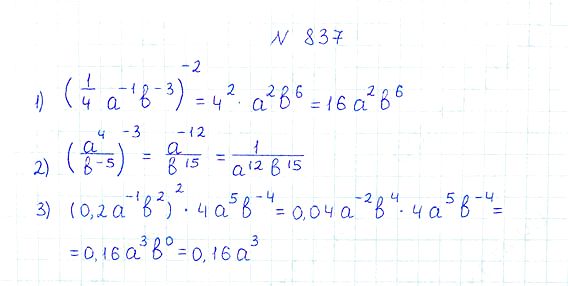 N 837
1) (1/4 a⁻¹b⁻³)⁻² = 4² · a²b⁶ = 16a²b⁶
2) (a⁴/b⁻⁵)⁻³ = a⁻¹²/b¹⁵ = 1/a¹²b¹⁵
3) (0,2a⁻¹b²)² · 4a⁵b⁻⁴ = 0,04a⁻²b⁴ · 4a⁵b⁻⁴ =
= 0,16a³b⁰ = 0,16a³